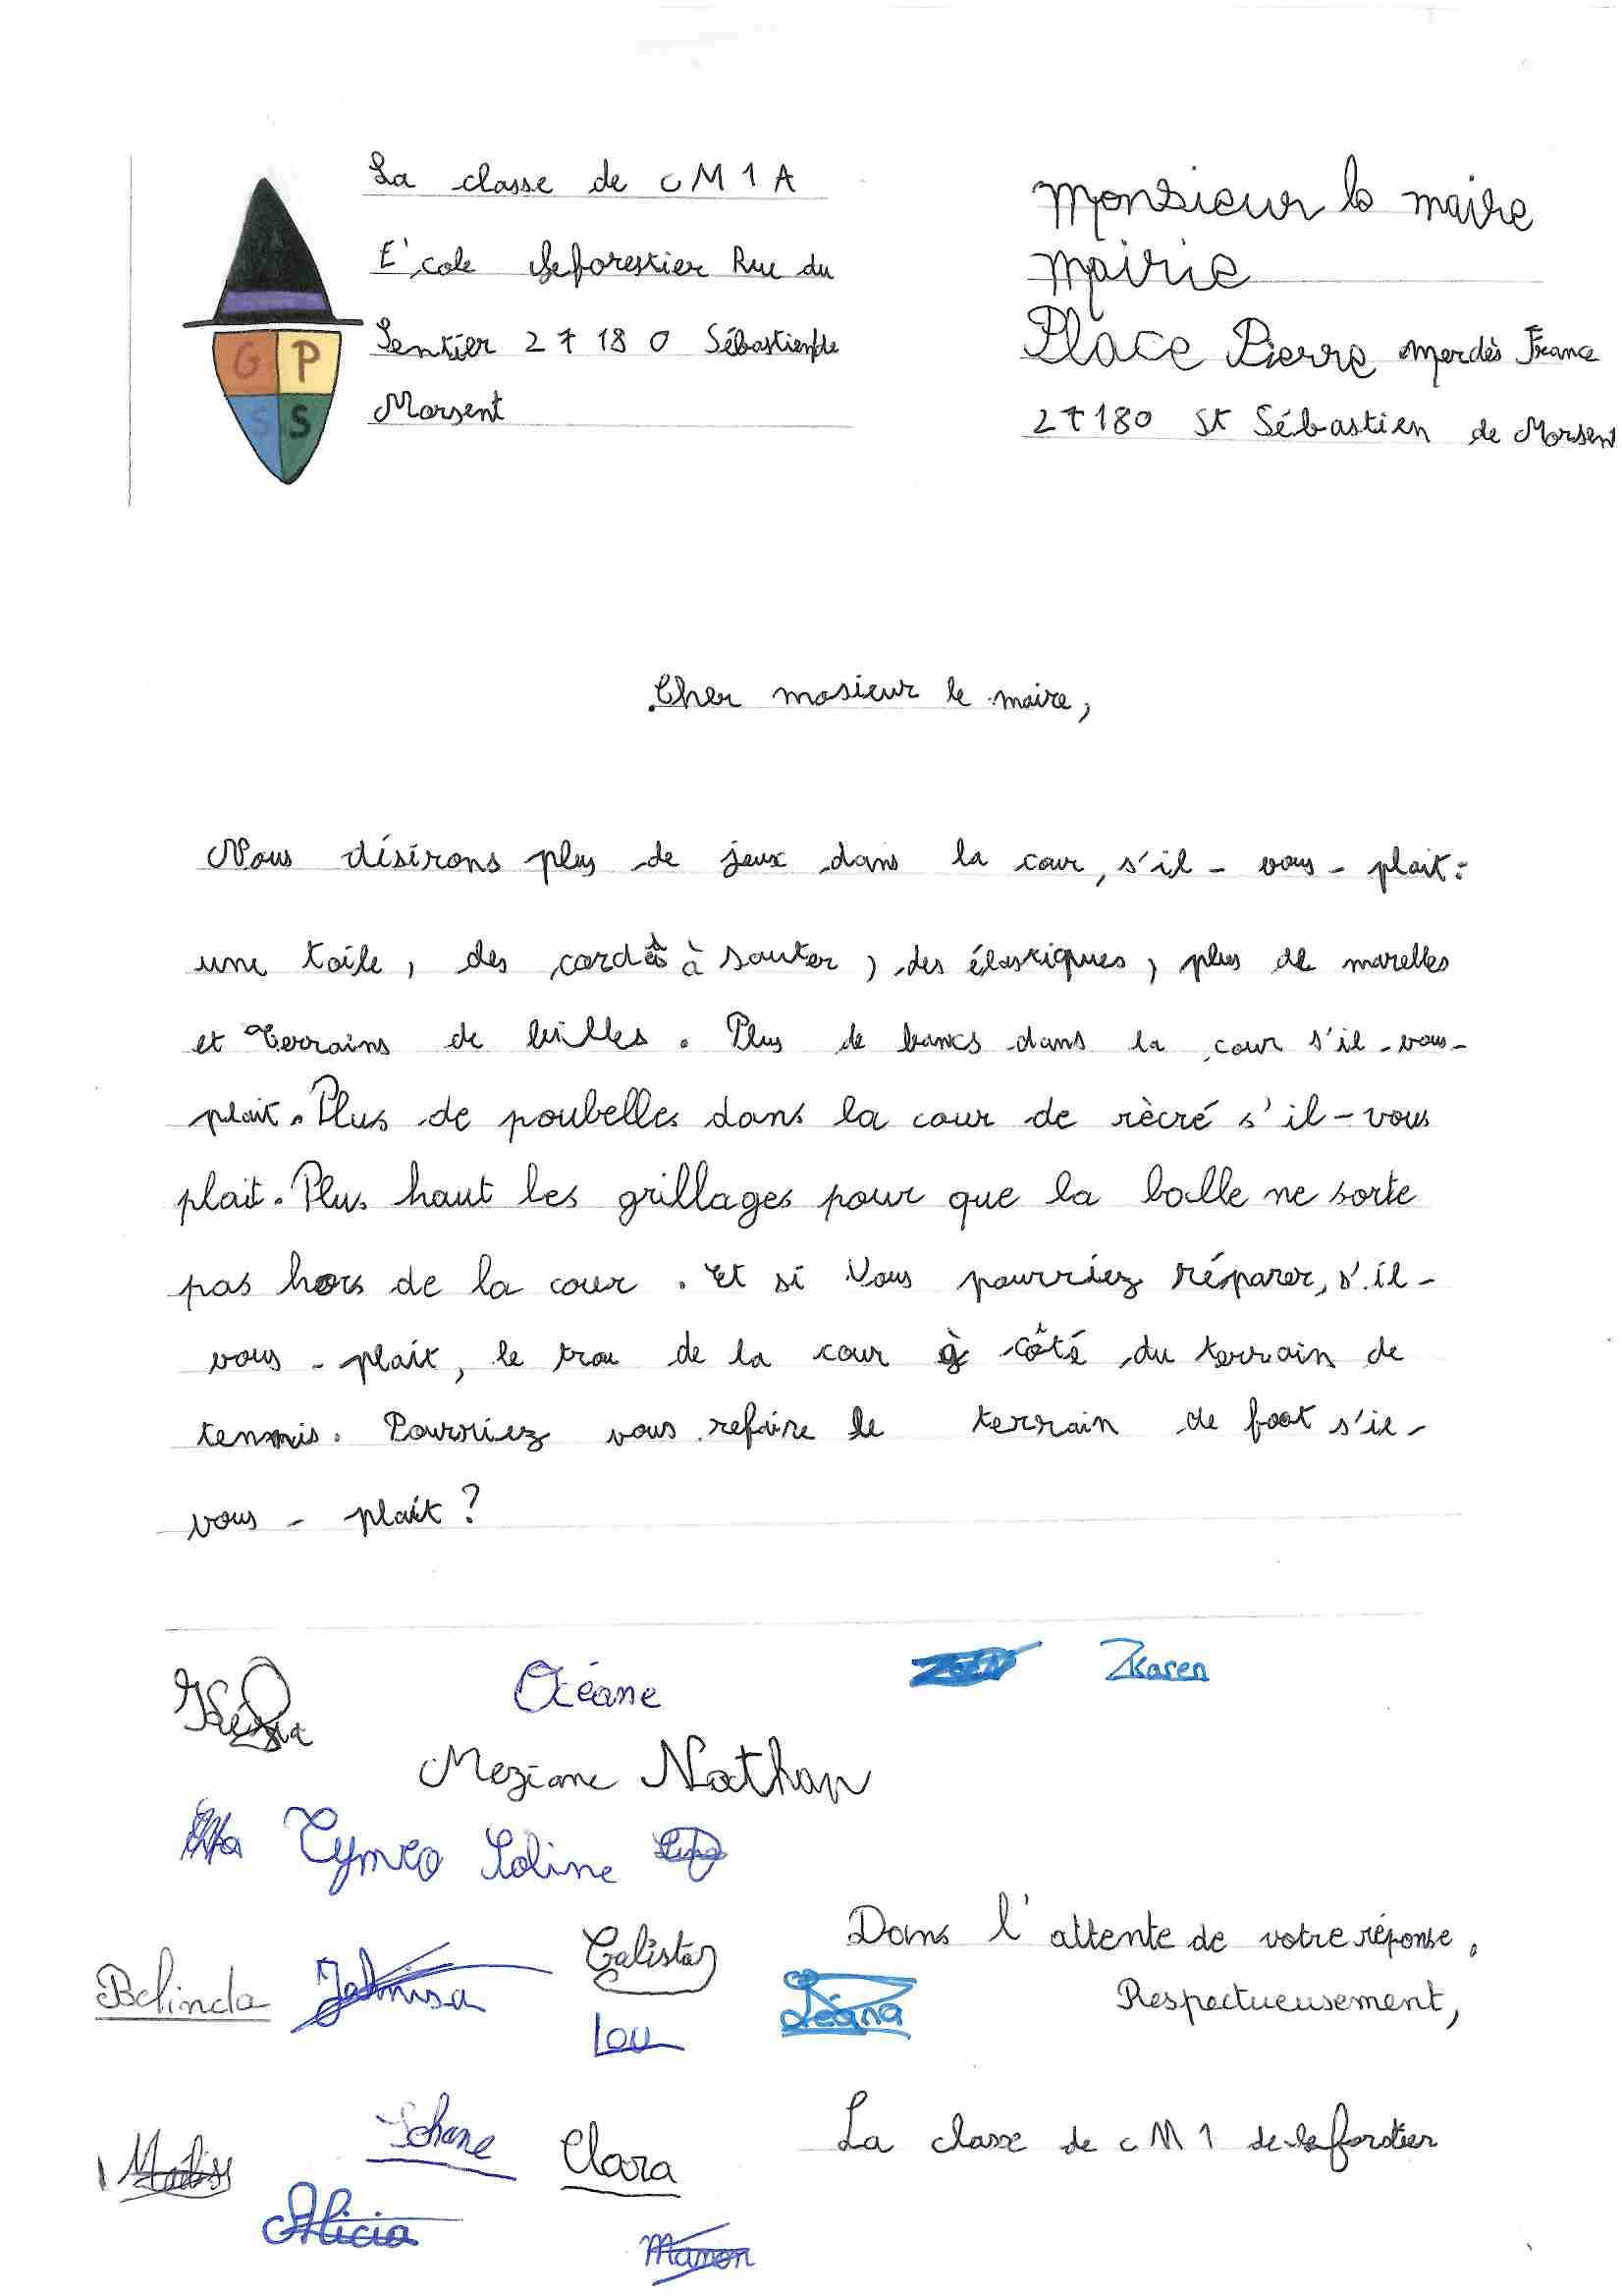 La classe de CM1A
École Leforestier Rue du
Sentier 27180 Sébastien de
Morsent
G P
S S
Monsieur le maire
Mairie
Place Pierre Merdès France
27180 St Sébastien de Morsent
Cher mosieur le maire,
Nous désirons plus de jeux dans la cour, s'il-vous-plait:
une toile, des cordes à sauter, des élastiques, plus de marelles
et terrains de billes. Plus de bancs dans la cour s'il-vous-
plait. Plus de poubelles dans la cour de rècré s'il-vous
plait. Plus haut les grillages pour que la balle ne sorte
pas hors de la cour. Et si vous pourriez réparer, s'il-
vous-plait, le trou de la cour à côté du terrain de
tennis. Pourriez vous refaire le terrain de foot s'il-
vous-plait?
Océane Karen
Meziane Nathan
Tyméo Soline
Calista
Dans l'attente de votre réponse.
Belinda
Léana
Respectueusement,
Lou
Clara
La classe de CM1 de leforstier
Alicia
Manon